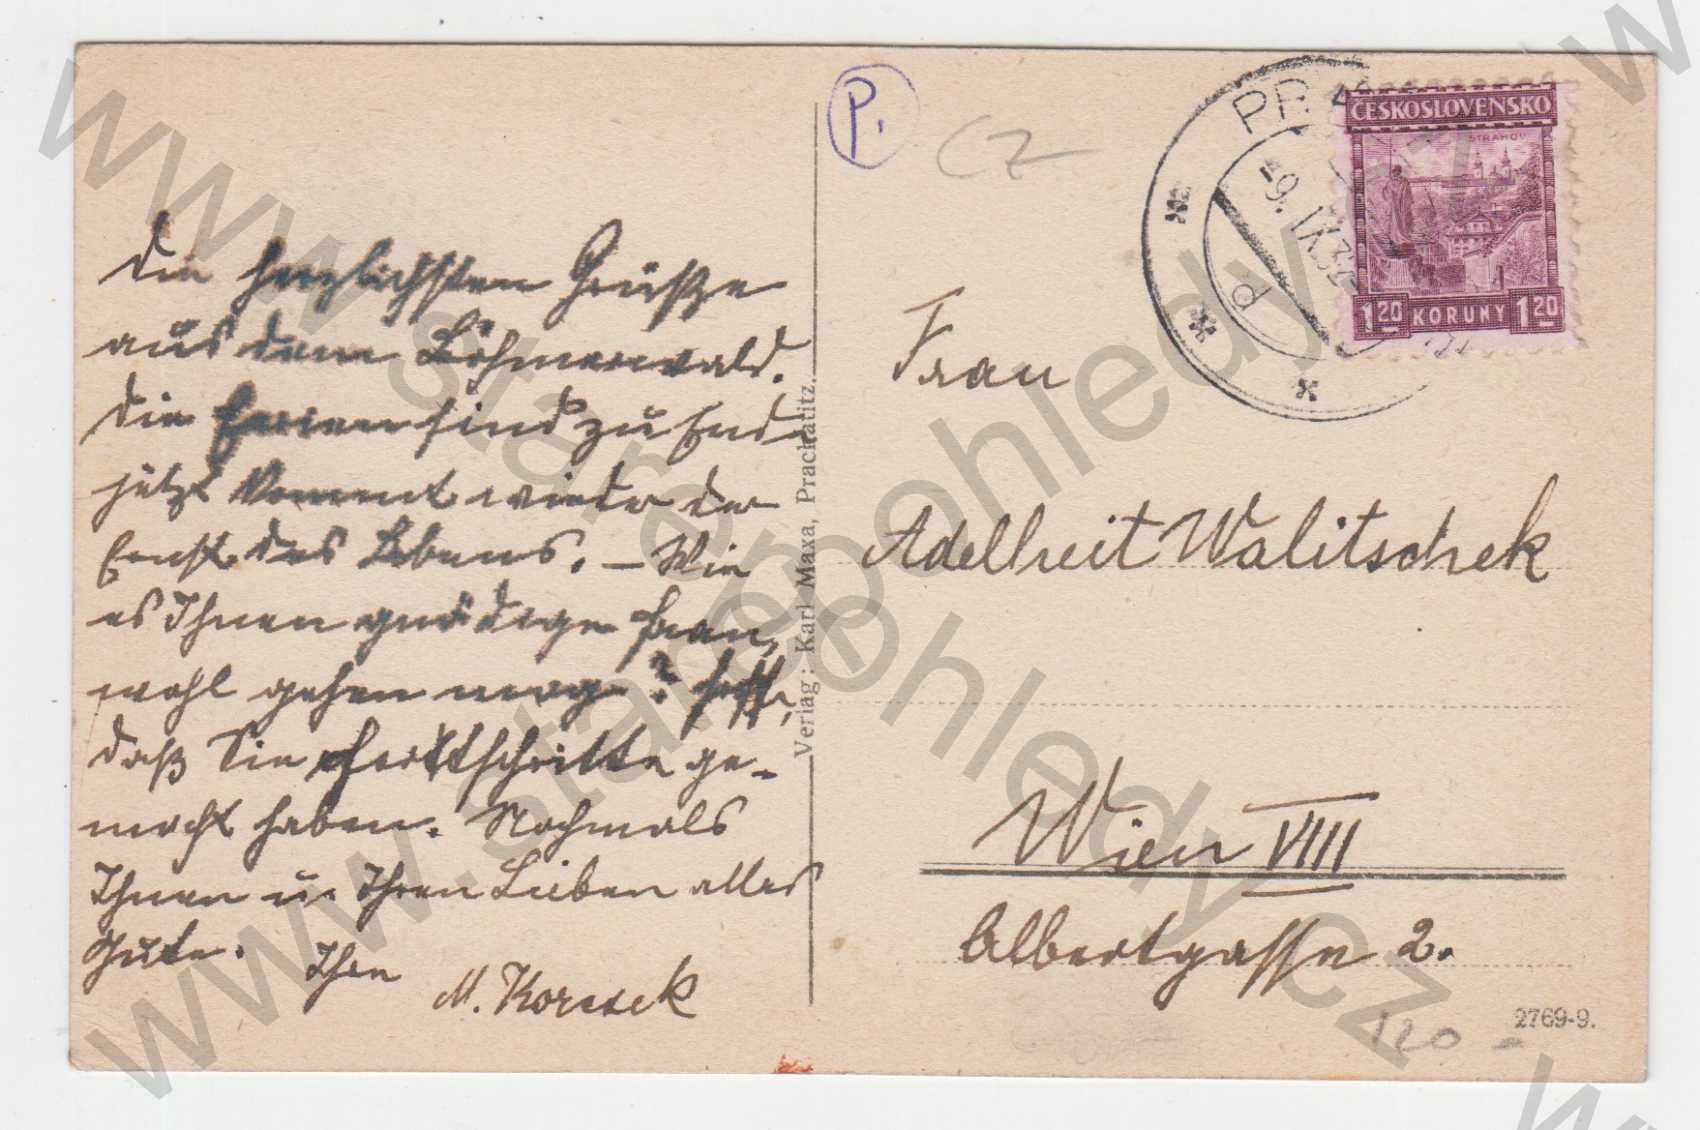 Die herzlichsten Grüße
aus dem Böhmerwald.
Die Ferien sind zu Ende
jetzt kommt wieder der
Ernst des Lebens. – Wie
es Ihnen gnädige Frau,
wohl gehen mag? Hoffe,
daß Sie Fortschritte ge-
macht haben. Nochmals
Ihnen u. Ihren Lieben alles
Gute. Ihre
M.
Verlag: Karl Maxa, Prachatitz.
P.
CZ
PR
-9. IX. 32
d
ČESKOSLOVENSKO
STRAHOV
1.20 KORUNY 1.20
Frau
Adelheit Walitschek
Wien VIII
Albertgasse 2.
2769-9.
120 -
www.starepohledy.cz
www.starepohledy.cz